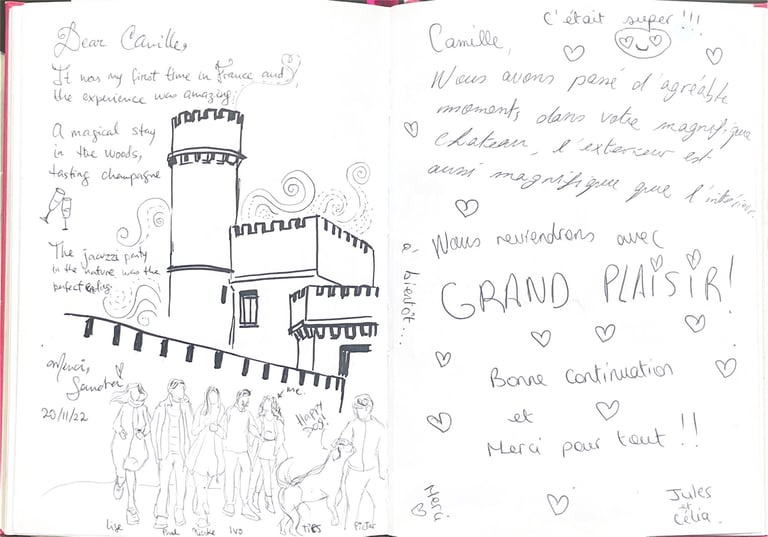 Dear Camille,
It was my first time in France and
the experience was amazing
A magical stay
in the woods,
tasting champagne
The jacuzzi party
in the nature was the
perfect ending
Merci,
Sandra
20/11/22
me.
Happy
DOG!
Lise
Paul
Ivo
Pieter
C'était super !!!
Camille,
Nous avons passé d'agréable
moments dans votre magnifique
chateau, l'exterieur est
aussi magnifique que l'intérieur.
Nous reviendrons avec
GRAND PLAISIR!
à bientôt...
Bonne continuation
et
Merci pour tout !!
Merci
Jules
et
Célia.